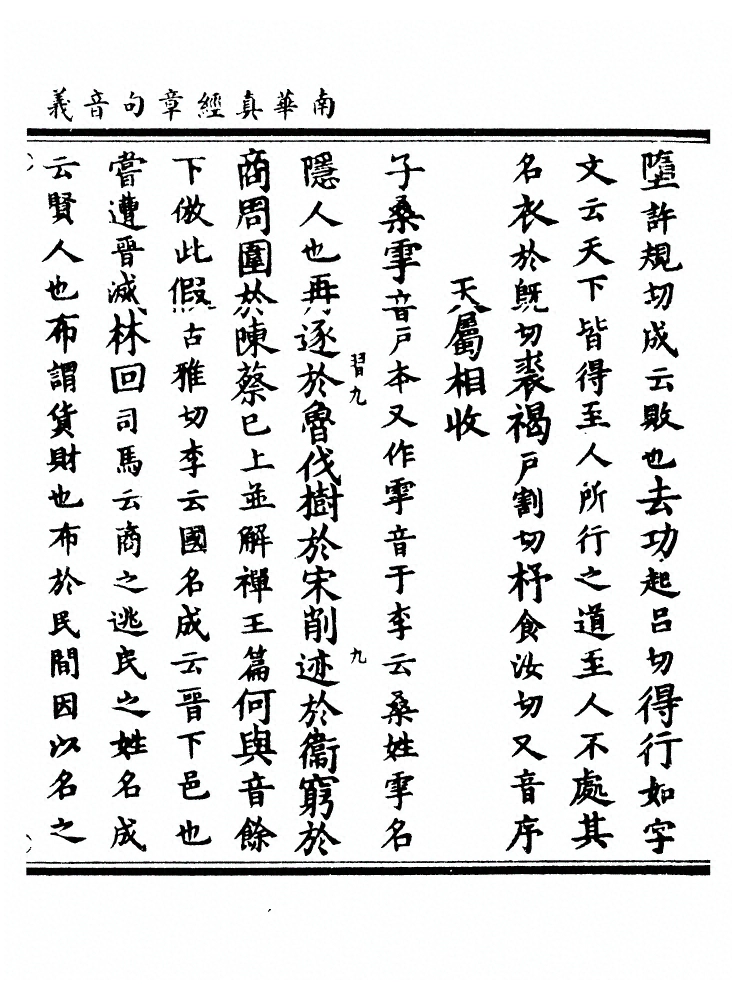 南華真經章句音義
墮許規切成云敗也去功起呂切得行如字
文云天下皆得至人所行之道至人不處其
名衣於旣切裘褐戶割切杼食汝切又音序
天屬相收
子桑雽音戶本又作雽音于李云桑姓雽名
隱人也再逐於魯伐樹於宋削迹於衞窮於
習九
九
商周圍於陳蔡已上並解禪王篇何與音餘
下倣此假古雅切李云國名成云晉下邑也
嘗遭晉滅林回司馬云商之逃民之姓名成
云賢人也布謂貨財也布於民間因以名之